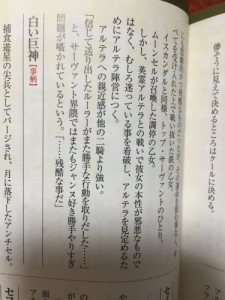 儚そうに見えて決めるところはクールに決める。
戦い抜いた鉄の乙女。
イスカンダルと同様、トップ・サーヴァントのひとり。
ムーンセルが召喚した調停の乙女。
しかし、英霊アルテラとの戦いで彼女の本性が邪悪なもので
はなく、むしろ迷っている事を看破し、アルテラを見定めるた
めにアルテラ陣営につく。
アルテラへの親近感が他の二騎より強い。
「信じて送り出したルーラーがまた勝手な行動を取りだした……」
と、サーヴァント界隈ではまたもジャンヌ好き勝手やりすぎ
問題が囁かれているという。「……残酷な事だ」
白い巨神【事柄】
捕食遊星の尖兵としてパージされ、月に落下したアンチセル。